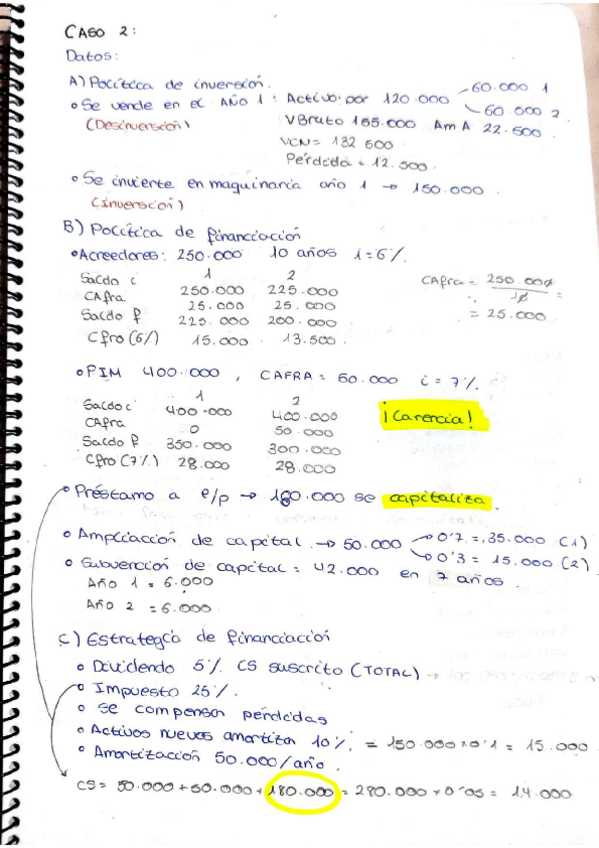 CASO 2:
Datos:
A) Política de inversión.
• Se vende en el AÑO 1: Activo: por 120.000 60.000 1
60.000 2
(Desinversión) VBruto 155.000 AmA 22.500
VCN = 132 500
Pérdida = 12.500
• Se invierte en maquinaria año 1 → 150.000
(inversión)
B) Política de financiación
• Acreedores: 250.000 10 años i=6%
1 2
Saldo i 250.000 225.000
CAfra 25.000 25.000
Saldo f 225.000 200.000
Cfro (6%) 15.000 13.500
CAfra = 250.000 / 10 =
= 25.000
• PIM 400.000, CAFRA = 50.000 i = 7%
1 2
Saldo i 400.000 400.000
CAfra 0 50.000
Saldo f 350.000 300.000
Cfro (7%) 28.000 28.000
¡Carencia!
• Préstamo a e/p → 180.000 se capitaliza.
• Ampliación de capital → 50.000 0'7 = 35.000 (1)
0'3 = 15.000 (2)
• Subvención de capital = 42.000 en 7 años.
Año 1 = 6.000
Año 2 = 6.000
C) Estrategia de financiación
• Dividendo 5% CS suscrito (TOTAL) →
• Impuesto 25%.
• Se compensan pérdidas
• Activos nuevos amortiza 10% = 150.000×0'1 = 15.000
• Amortización 50.000/año.
CS = 50.000 + 50.000 + 180.000 = 280.000 × 0'05 = 14.000